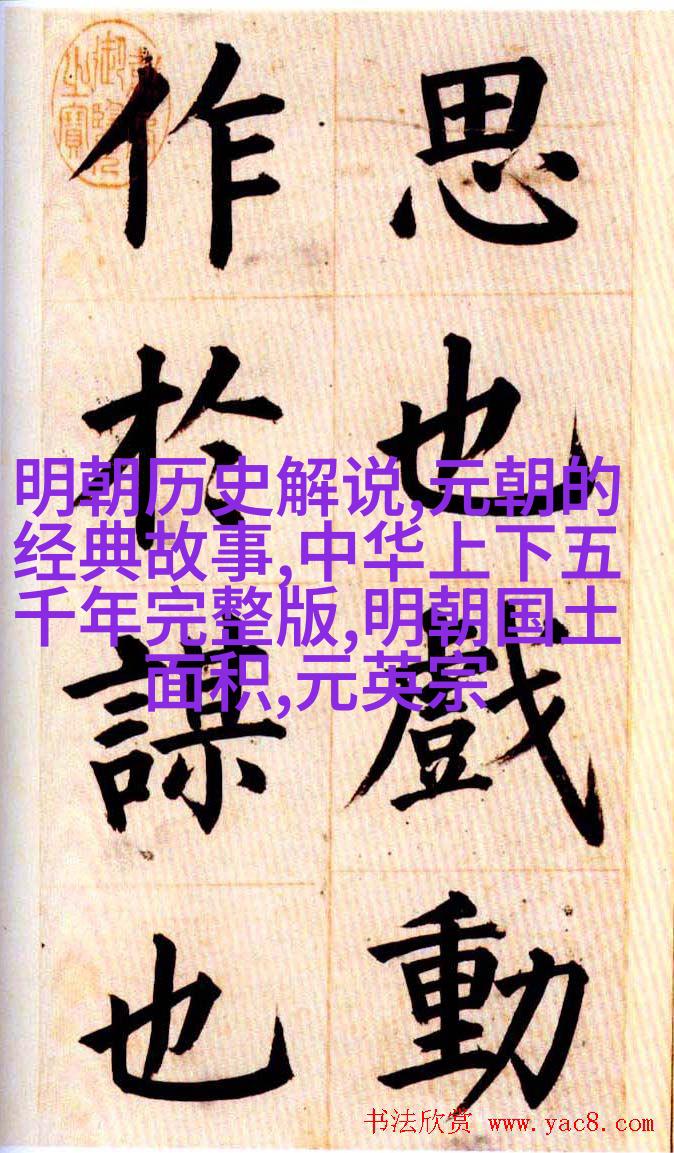 思也戲動
作於謀也
明朝历史解说,元朝的
经典故事,中华上下五
千年完整版,明朝国土
面积,元英宗
书法欣赏 www.yac8.com